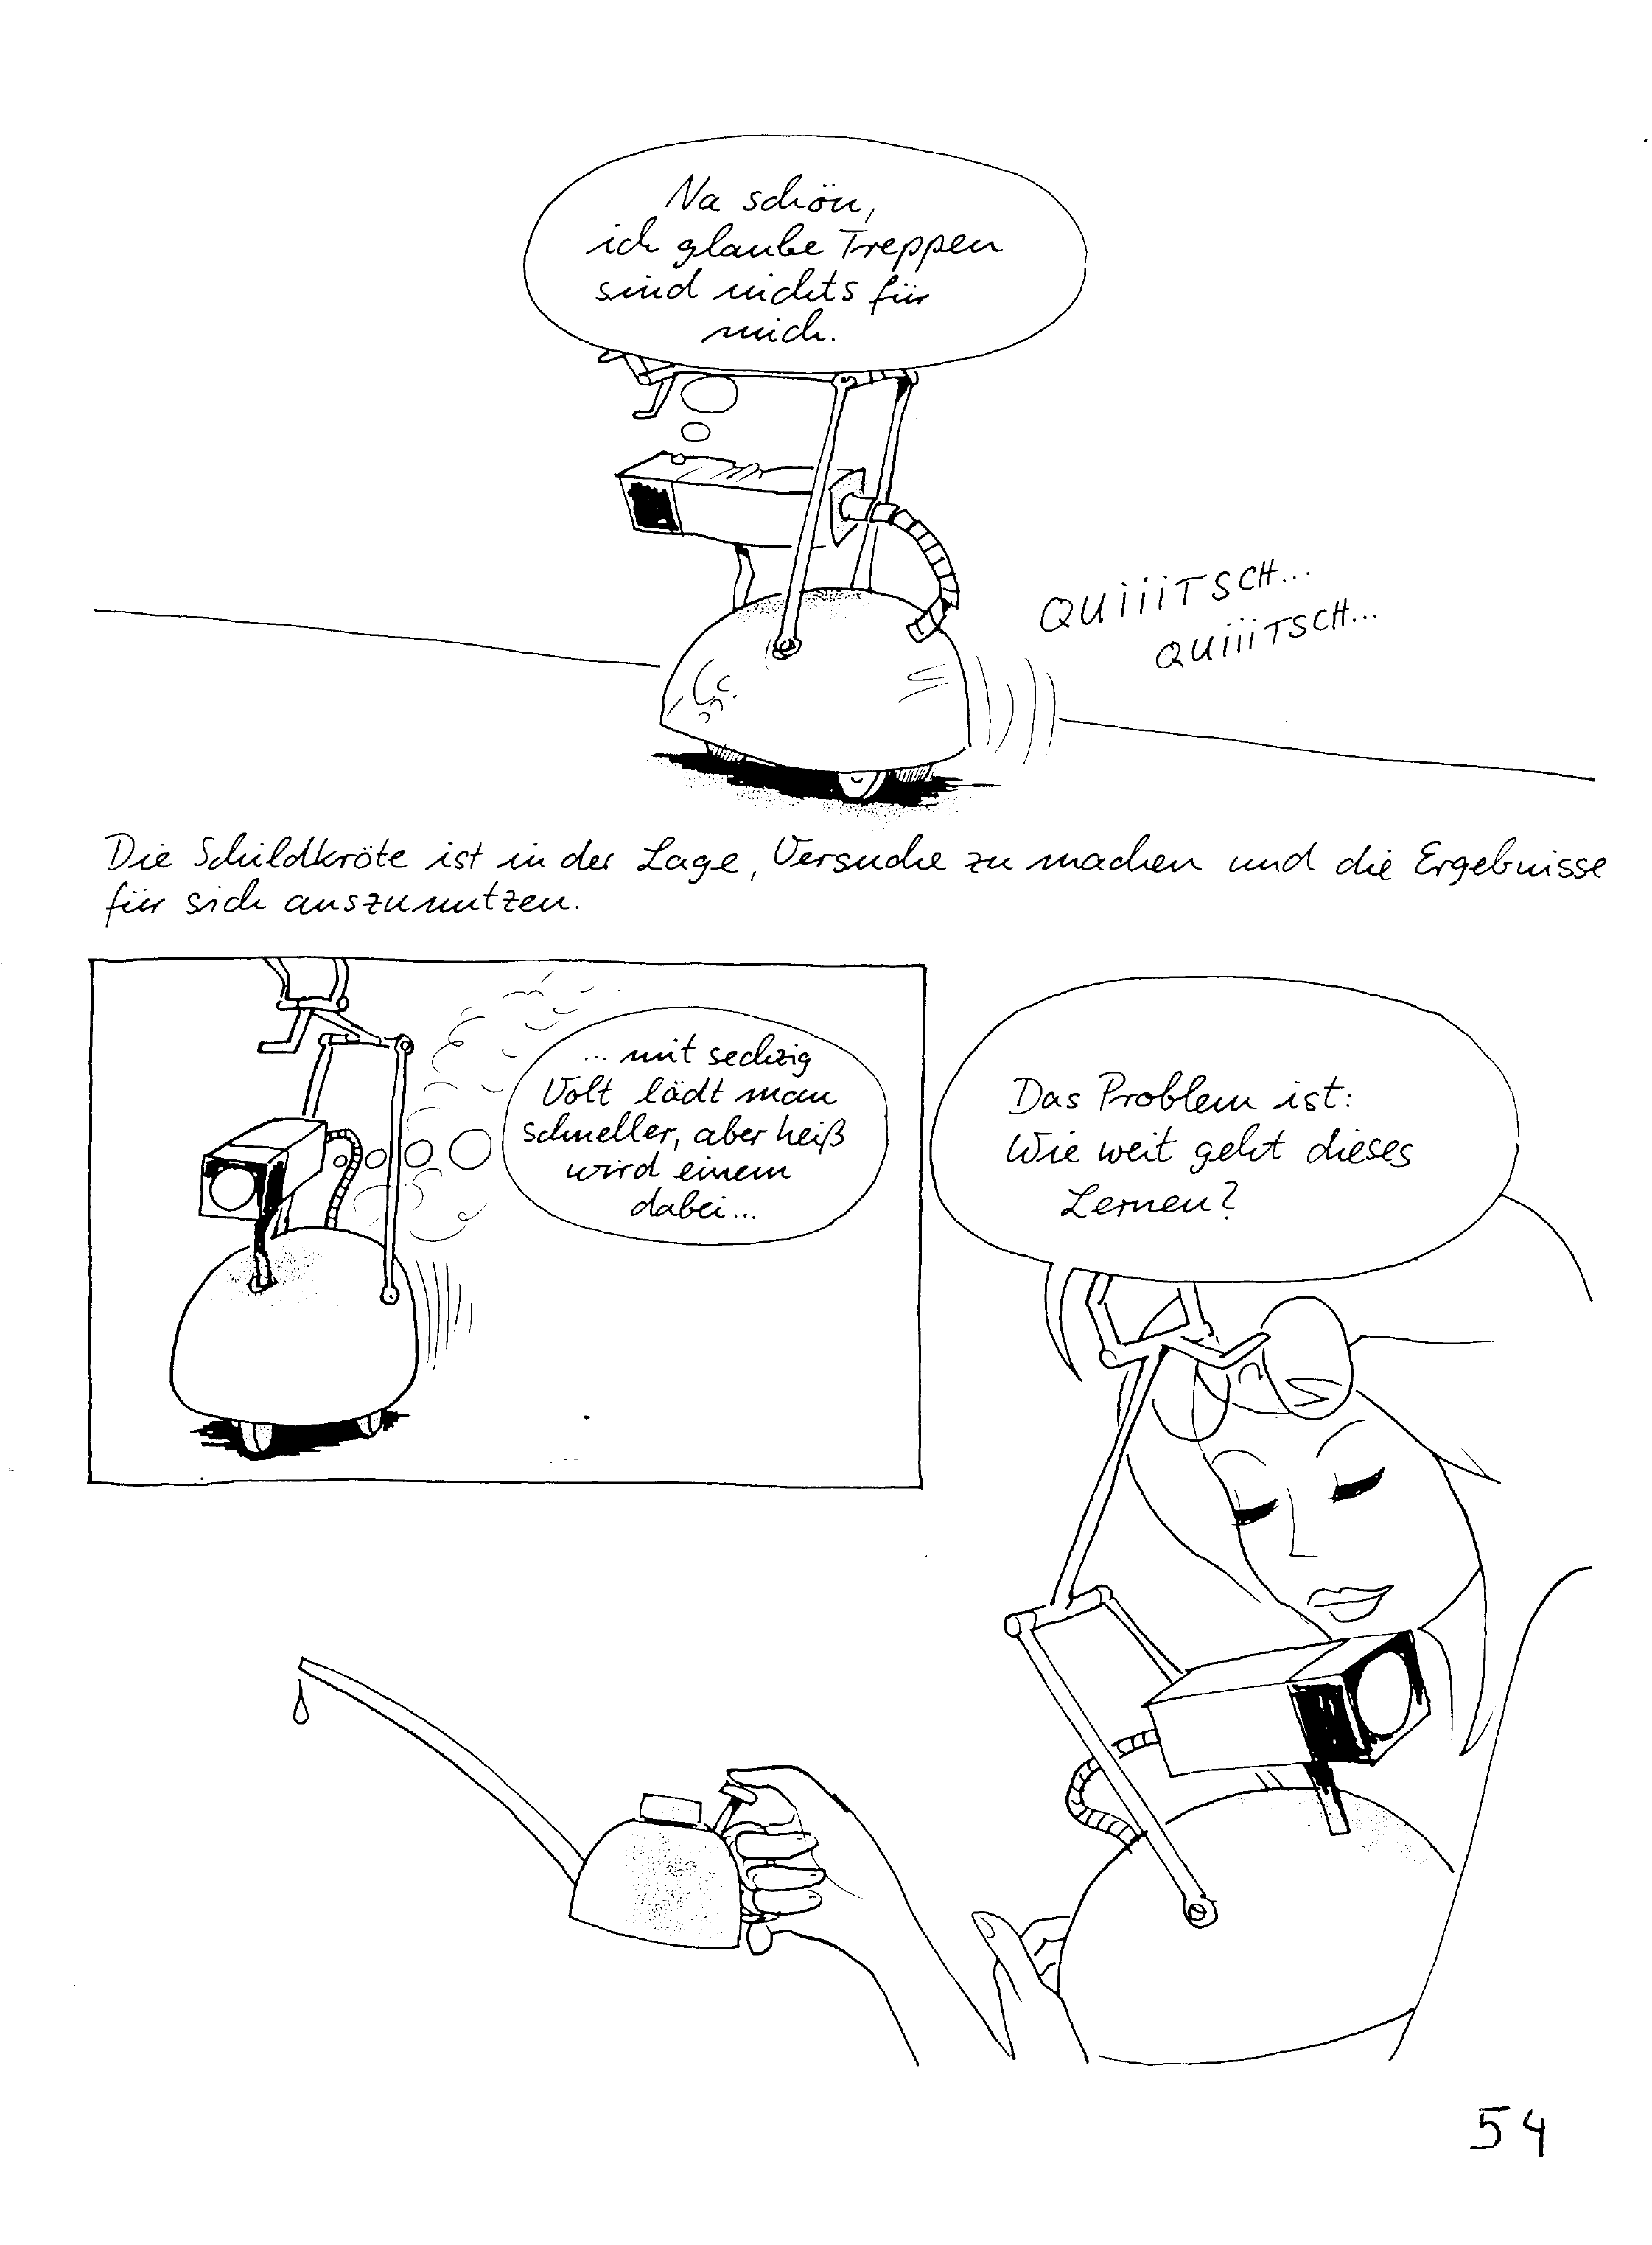 Na schön,
ich glaube Treppen
sind nichts für
mich.
QUiiiTSCH...
QUiiiTSCH...
Die Schildkröte ist in der Lage, Versuche zu machen und die Ergebnisse
für sich auszunutzen.
... mit sechzig
Volt lädt man
schneller, aber heiß
wird einem
dabei...
Das Problem ist:
Wie weit geht dieses
Lernen?
54